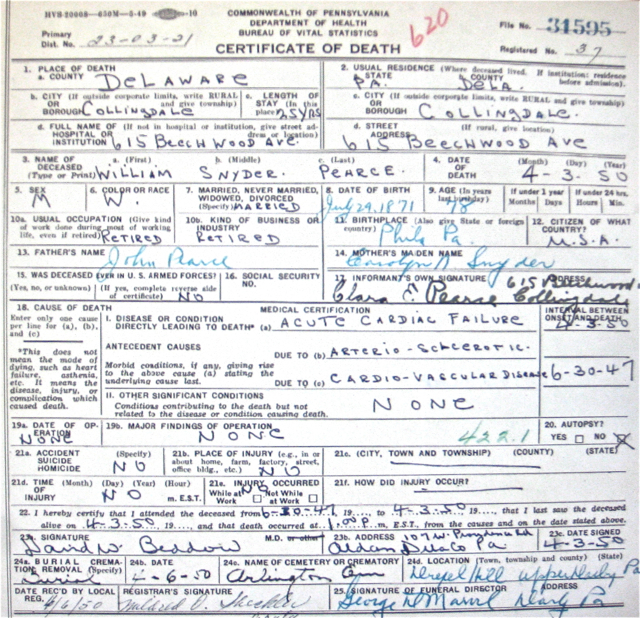 HVB-20005-650M-3-49 -10
COMMONWEALTH OF PENNSYLVANIA
DEPARTMENT OF HEALTH
BUREAU OF VITAL STATISTICS
620
File No. 31595
Primary
Dist. No. 23-03-21
CERTIFICATE OF DEATH
Registered No. 37
1. PLACE OF DEATH
a. COUNTY DELAWARE
2. USUAL RESIDENCE (Where deceased lived. If institution: residence before admission).
STATE PA. b. COUNTY DELA.
b. CITY (If outside corporate limits, write RURAL and give township)
OR BOROUGH COLLINGDALE
c. LENGTH OF STAY (In this place) 25 YRS
c. CITY (If outside corporate limits, write RURAL and give township)
OR BOROUGH COLLINGDALE.
d. FULL NAME OF (If not in hospital or institution, give street address or location)
HOSPITAL OR INSTITUTION 615 BEECHWOOD AVE.
d. STREET ADDRESS (If rural, give location)
615 BEECHWOOD AVE
3. NAME OF DECEASED (Type or Print)
a. (First) b. (Middle) c. (Last)
WILLIAM SNYDER. PEARCE.
4. DATE OF DEATH (Month) (Day) (Year)
4-3-50
5. SEX M
6. COLOR OR RACE W.
7. MARRIED, NEVER MARRIED, WIDOWED, DIVORCED (Specify) MARRIED
8. DATE OF BIRTH July 29, 1871
9. AGE (In years last birthday) 78
If under 1 year Months Days
If under 24 hrs. Hours Min.
10a. USUAL OCCUPATION (Give kind of work done during most of working life, even if retired) RETIRED
10b. KIND OF BUSINESS OR INDUSTRY RETIRED
11. BIRTHPLACE (Also give State or foreign country) Phila Pa.
12. CITIZEN OF WHAT COUNTRY? U.S.A.
13. FATHER'S NAME John Pearce
14. MOTHER'S MAIDEN NAME Snyder
15. WAS DECEASED EVER IN U.S. ARMED FORCES?
(Yes, no, or unknown) (If yes, complete reverse side of certificate) NO
16. SOCIAL SECURITY NO.
17. INFORMANT'S OWN SIGNATURE ADDRESS
Clara Pearce 615 Beechwood Collingdale
18. CAUSE OF DEATH
Enter only one cause per line for (a), (b), and (c)
MEDICAL CERTIFICATION
INTERVAL BETWEEN ONSET AND DEATH
I. DISEASE OR CONDITION
DIRECTLY LEADING TO DEATH* (a) ACUTE CARDIAC FAILURE 4-3-50
*This does not mean the mode of dying, such as heart failure, asthenia, etc. It means the disease, injury, or complication which caused death.
ANTECEDENT CAUSES
Morbid conditions, if any, giving rise to the above cause (a) stating the underlying cause last.
DUE TO (b) ARTERIO-SCHLEROTIC.
DUE TO (c) CARDIO-VASCULAR DISEASE 6-30-47
II. OTHER SIGNIFICANT CONDITIONS
Conditions contributing to the death but not related to the disease or condition causing death.
NONE
19a. DATE OF OPERATION NONE
19b. MAJOR FINDINGS OF OPERATION NONE
422.1
20. AUTOPSY?
YES NO X
21a. ACCIDENT SUICIDE HOMICIDE (Specify) NO
21b. PLACE OF INJURY (e.g., in or about home, farm, factory, street, office bldg., etc.) NO
21c. (CITY, TOWN AND TOWNSHIP) (COUNTY) (STATE)
21d. TIME OF INJURY (Month) (Day) (Year) (Hour) m. EST. NO
21e. INJURY OCCURRED While at Work Not While at Work NO
21f. HOW DID INJURY OCCUR?
22. I hereby certify that I attended the deceased from 6-30-47, 19...., to 4-3-50, 19...., that I last saw the deceased
alive on 4-3-50 19...., and that death occurred at 1:00 P.m. E.S.T., from the causes and on the date stated above.
23a. SIGNATURE M.D. or other
David W Beddow
23b. ADDRESS 107 W. Providence Rd
Aldan Pa
23c. DATE SIGNED 4-3-50
24a. BURIAL CREMATION, REMOVAL (Specify) Burial
24b. DATE 4-6-50
24c. NAME OF CEMETERY OR CREMATORY Arlington Cem
24d. LOCATION (Town, township and county) (State)
Drexel Hill Upper Darby Pa
DATE REC'D BY LOCAL REG. 4/6/50
REGISTRAR'S SIGNATURE Mildred O.
25. SIGNATURE OF FUNERAL DIRECTOR ADDRESS
George Darby Pa